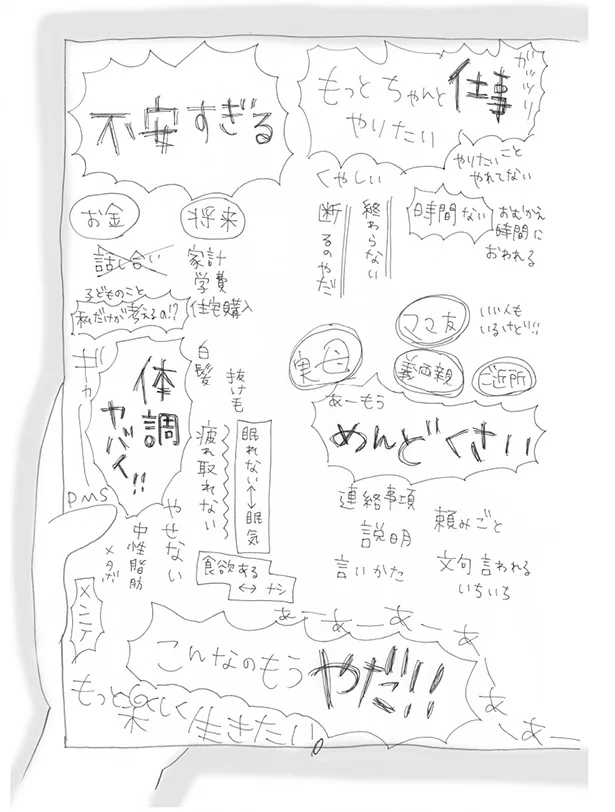 不安すぎる
もっとちゃんと仕事
やりたい
ガッツリ
やりたいこと
やれてない
くやしい
断るのやだ
終わらない
時間ない
おむかえ
時間に
おわれる
お金
将来
話し合い
子どものこと
私だけが考えるの!?
家計
学費
住宅購入
ママ友
いい人も
いるけど!!
実母
義両親
ご近所
あーもう
めんどくさい
連絡事項
説明
言いかた
頼みごと
文句言われる
いちいち
体調
ヤバイ!!
白髪
抜け毛
疲れ取れない
眠れない↔眠気
PMS
やせない
中性脂肪
メタボ
食欲ある
↔ナシ
メンテ
あーあーあーあーあーあー
こんなのもう やだ!!
もっと楽しく生きたい。